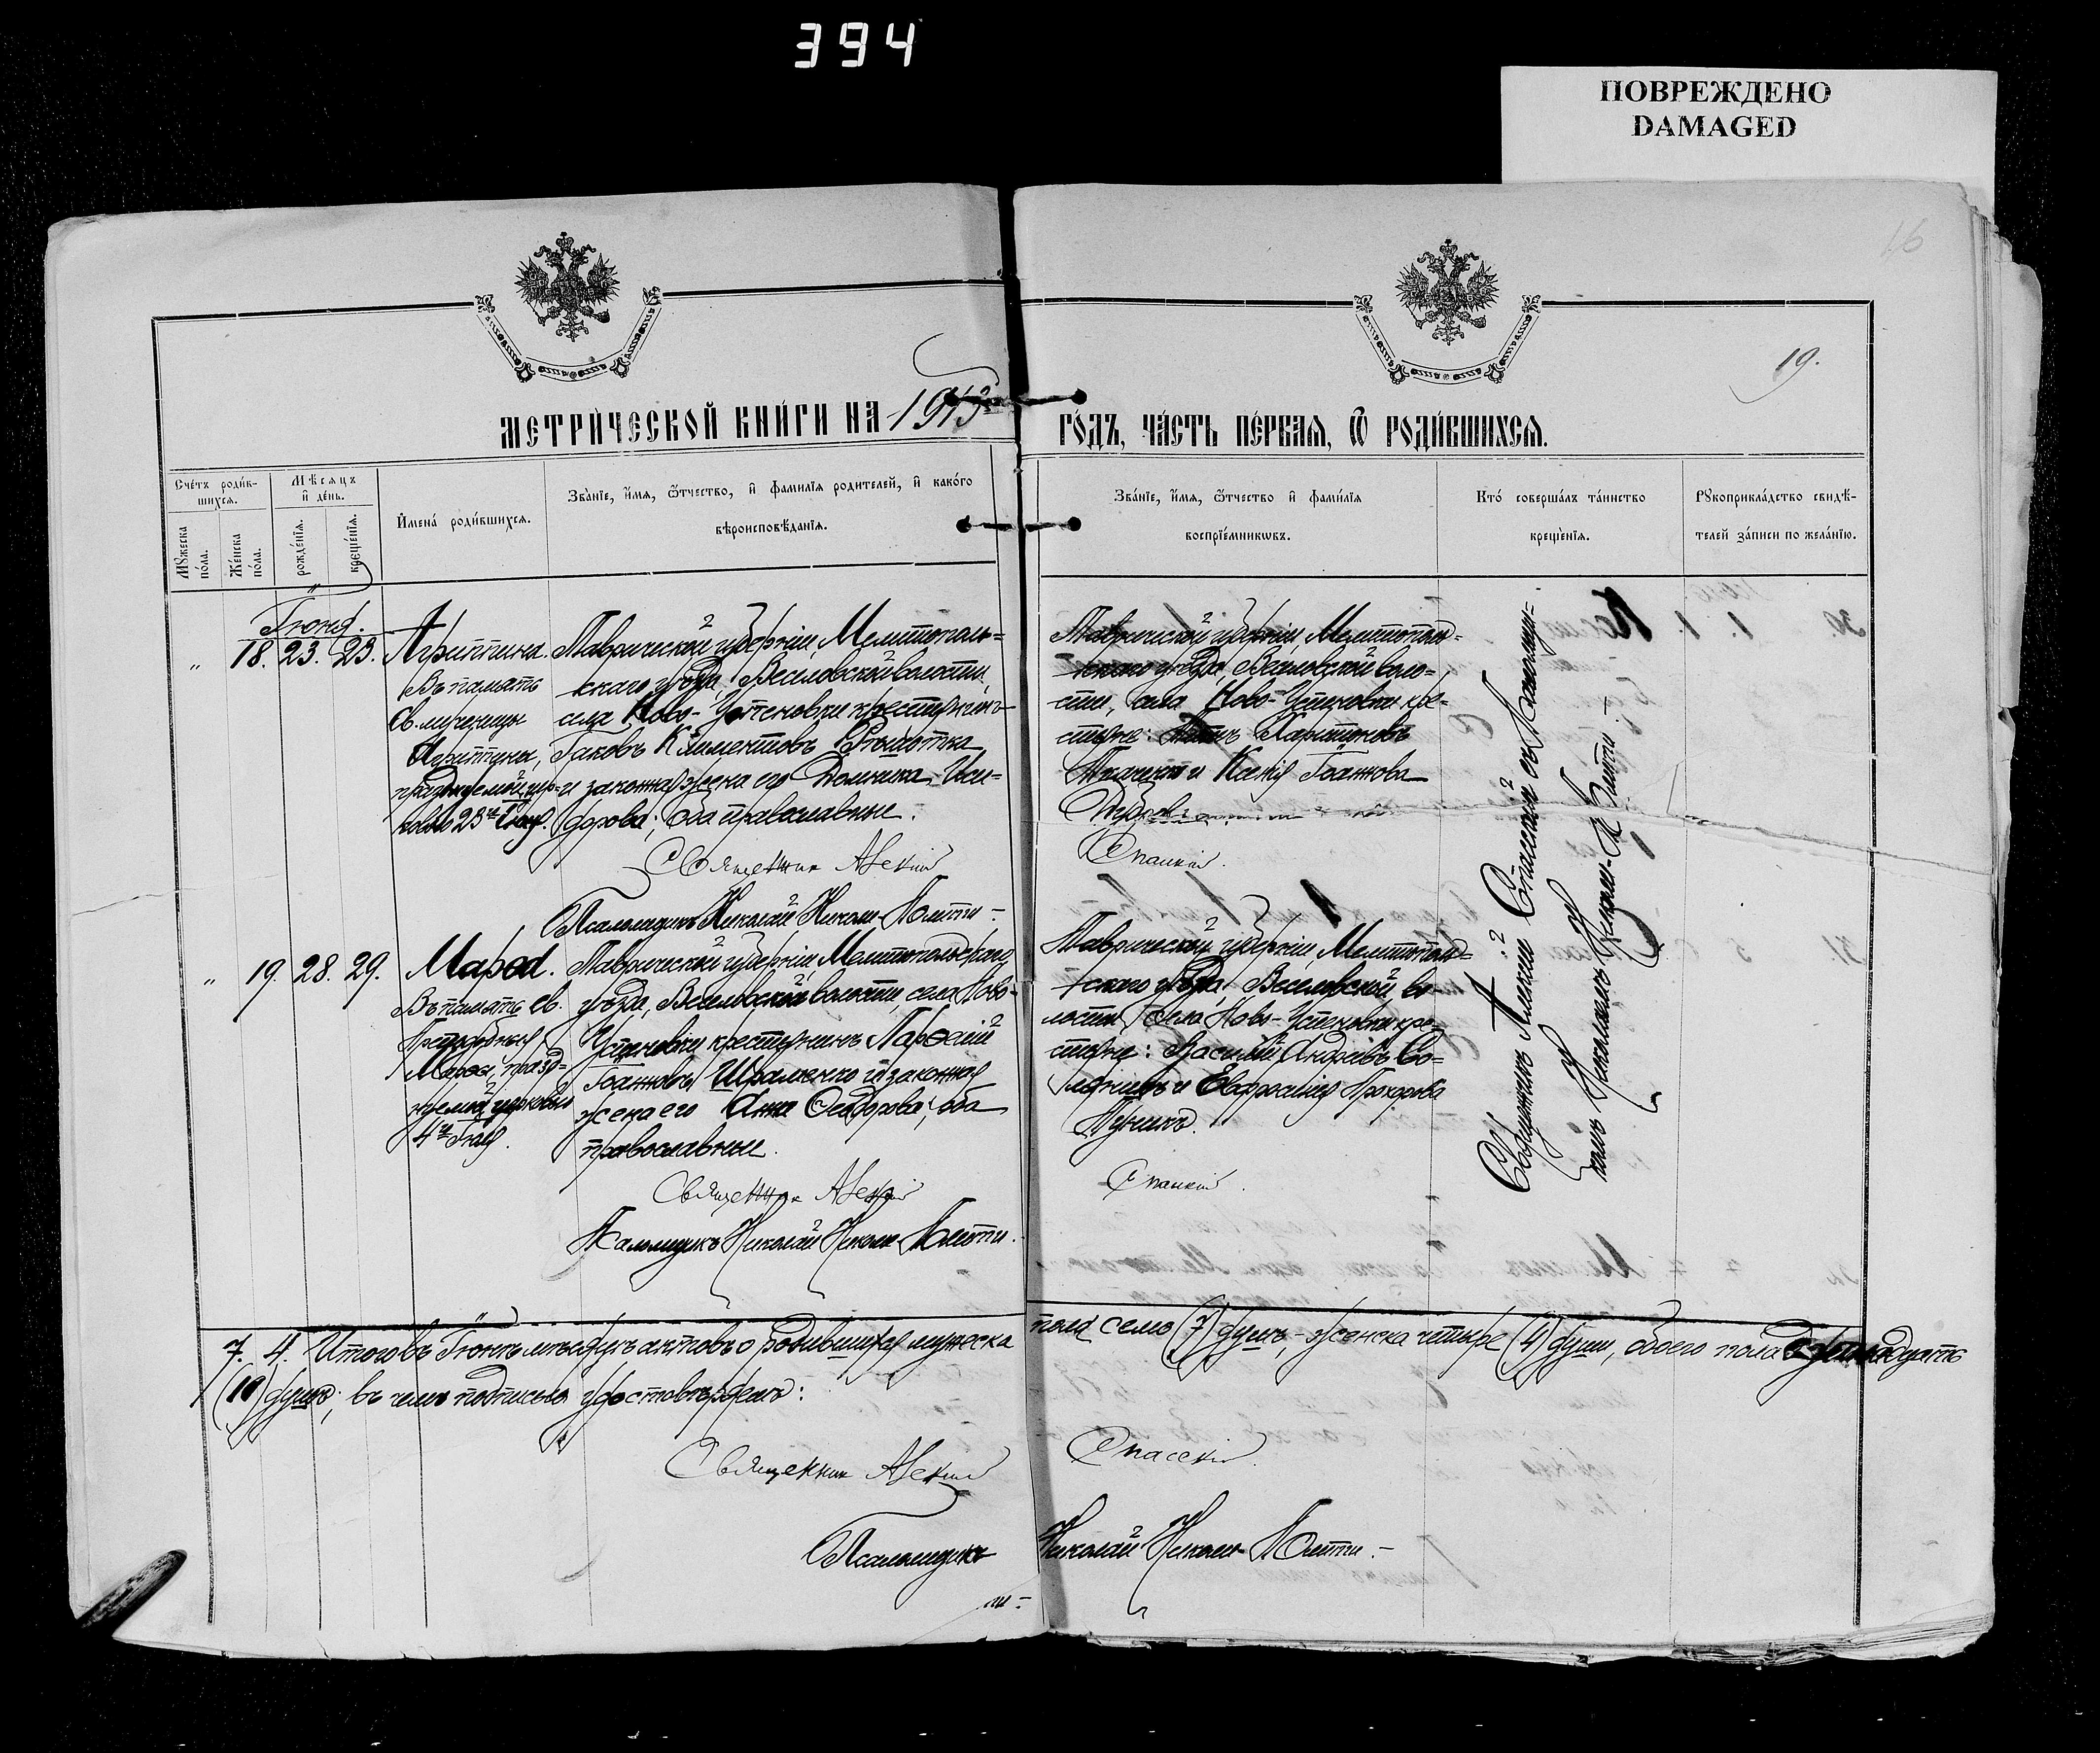 394
ПОВРЕЖДЕНО
DAMAGED
16
19.
МЕТРИ́ЧЕСКОЙ КНИ́ГИ НА 1913
ГО́ДЪ, ЧА́СТЬ ПЕ́РВАѦ, Ѿ РОДИ́ВШИХСѦ.
Счетъ роди́вшихсѧ.
Мꙋжеска по́ла.
Же́нска по́ла.
Мѣсѧцъ и де́нь.
рожде́нїѧ.
креще́нїѧ.
Имена́ роди́вшихсѧ.
Зва́нїе, и́мѧ, ѻ҆тчество, и фамилїѧ родителей, и како́го
вѣроисповѣ́данїѧ.
Зва́нїе, и́мѧ, ѻ҆тчество и фами́лїѧ
воспрїе́мникѡвъ.
Кто̀ соверша́лъ та́инство
креще́нїѧ.
Рꙋкоприкла́дство свидѣ-
телей за́писи по жела́нїю.
Іюня.
" 18. 23. 23.
Агриппина.
Въ память
св. мученицы
Агриппины,
празднуемой цер-
ковью 23го Іюня.
Таврической губерніи, Мелитополь-
скаго уѣзда, Веселовской волости,
села Ново-Успеновки крестьянинъ
Іаковъ Климентовъ
и законная жена его Домника Иси-
дорова; оба православные.
Священник Алексій
Псаломщикъ Николай Николи-
Таврической губерніи, Мелитополь-
скаго уѣзда, Веселовской воло-
сти, села Ново-Успеновки кре-
стьяне: Харитоновъ
и Ксенія Іоаннова
Спасскій.
Священникъ Алексій Спасскій съ псаломщи-
комъ Николаемъ Николи-
" 19. 28. 29.
Марѳа.
Въ память св.
Преподобныя
Марѳы, празд-
нуемой церковью
4го Іюля.
Таврической губерніи, Мелитопольскаго
уѣзда, Веселовской волости, села Ново-
Успеновки крестьянинъ Парѳеній
Іоанновъ Шраменко и законная
жена его Анна Ѳеодорова; оба
православные.
Священник Алексій
Псаломщикъ Николай Николи-
Таврической губерніи, Мелитополь-
скаго уѣзда, Веселовской во-
лости, села Ново-Успеновки кре-
стьяне: Василій Андреевъ
и Евфросинія Прохорова
Спасскій.
7. 4. Итого въ Іюнѣ мѣсяцѣ актовъ о родившихся мужеска
пола семь (7) душъ, женска четыре (4) души, обоего пола одинадцать
душъ; въ чемъ подписью удостовѣряемъ:
Священник Алексій
Спасскій.
Псаломщикъ
Николай Николи-